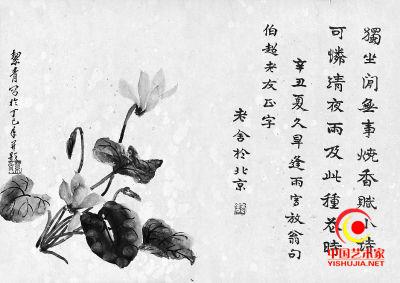 獨坐閒無事燒香賦小詩
可憐清夜雨及此種花時
辛丑夏久旱逢雨寫放翁句
伯超老友正字
老舍於北京
絜青寫於丁巳年并題
中国艺术家
YISHUJIA.NET